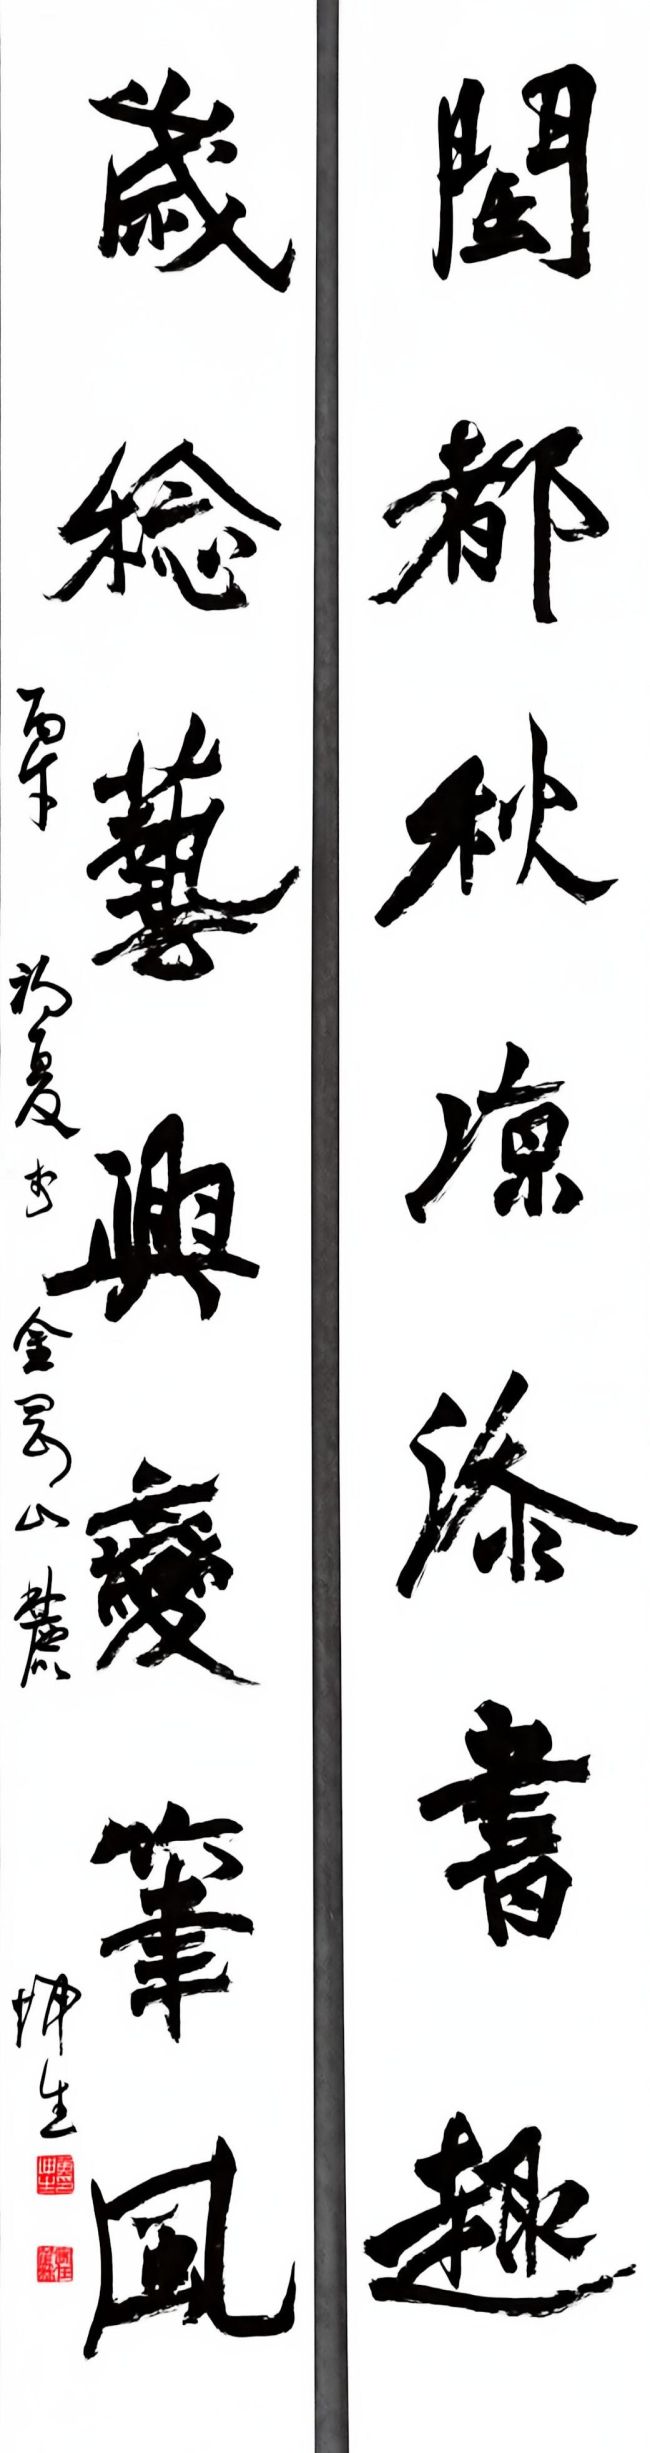 閩都秋涼添書趣
歲稔藝興變筆風
丙午初夏書金剛山麓
坤生